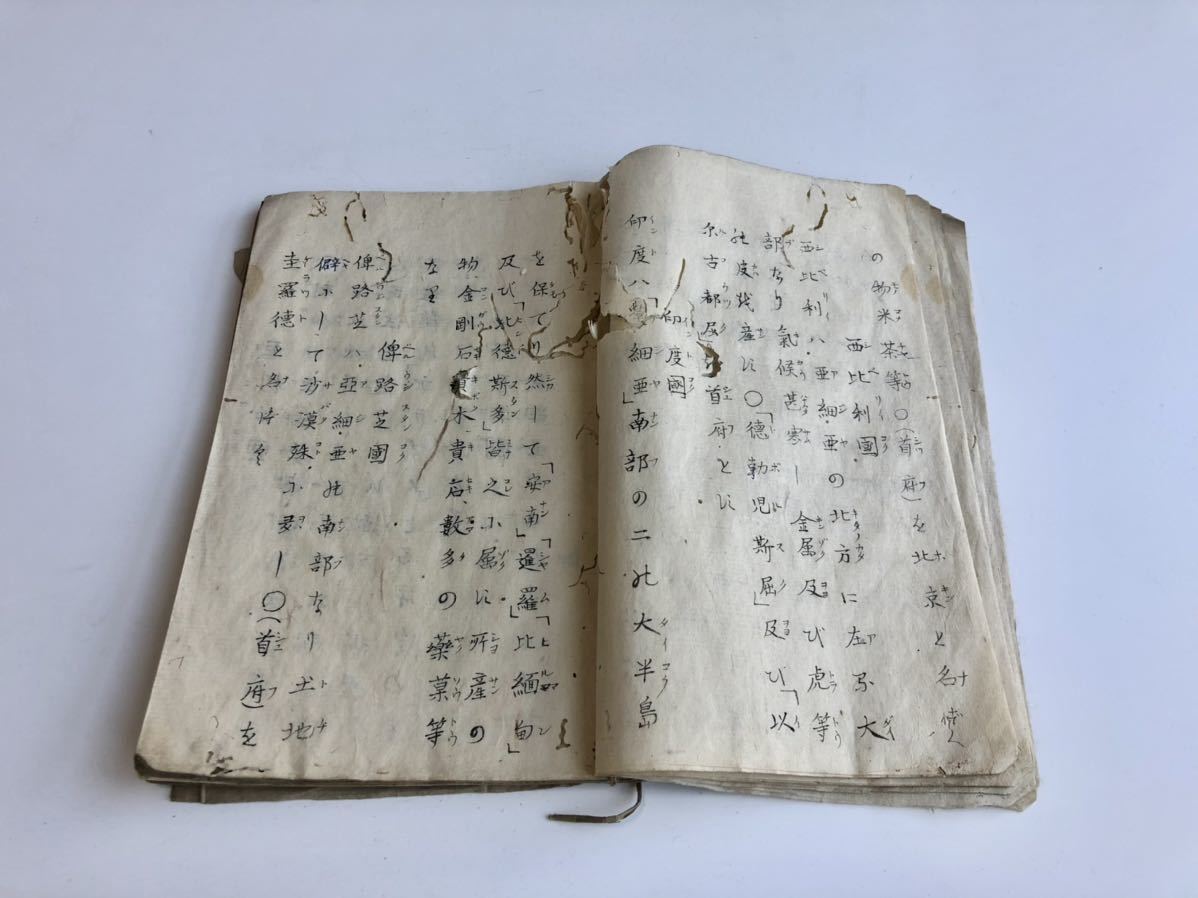 の物米茶等〇（首府）を北京と名
西比利國
西比利ハ亜細亜の北方に在る大
部なり氣候甚寒し金属及び虎等
能皮を産に〇「德勒児斯屈」及び「以
尓古都屈」を首府とに
印度國
印度ハ「亜細亜」南部の二能大半島
を保てり然して「安南」「暹羅」「比緬甸」
及び「北德斯多」皆之に属に所産の
物金剛石貴木貴石數多の藥菓等
なり
俾路芝國
俾路芝ハ亞細亜能南部なり土地
僻にして沙漠殊に多し〇（首府）を
圭羅德と為